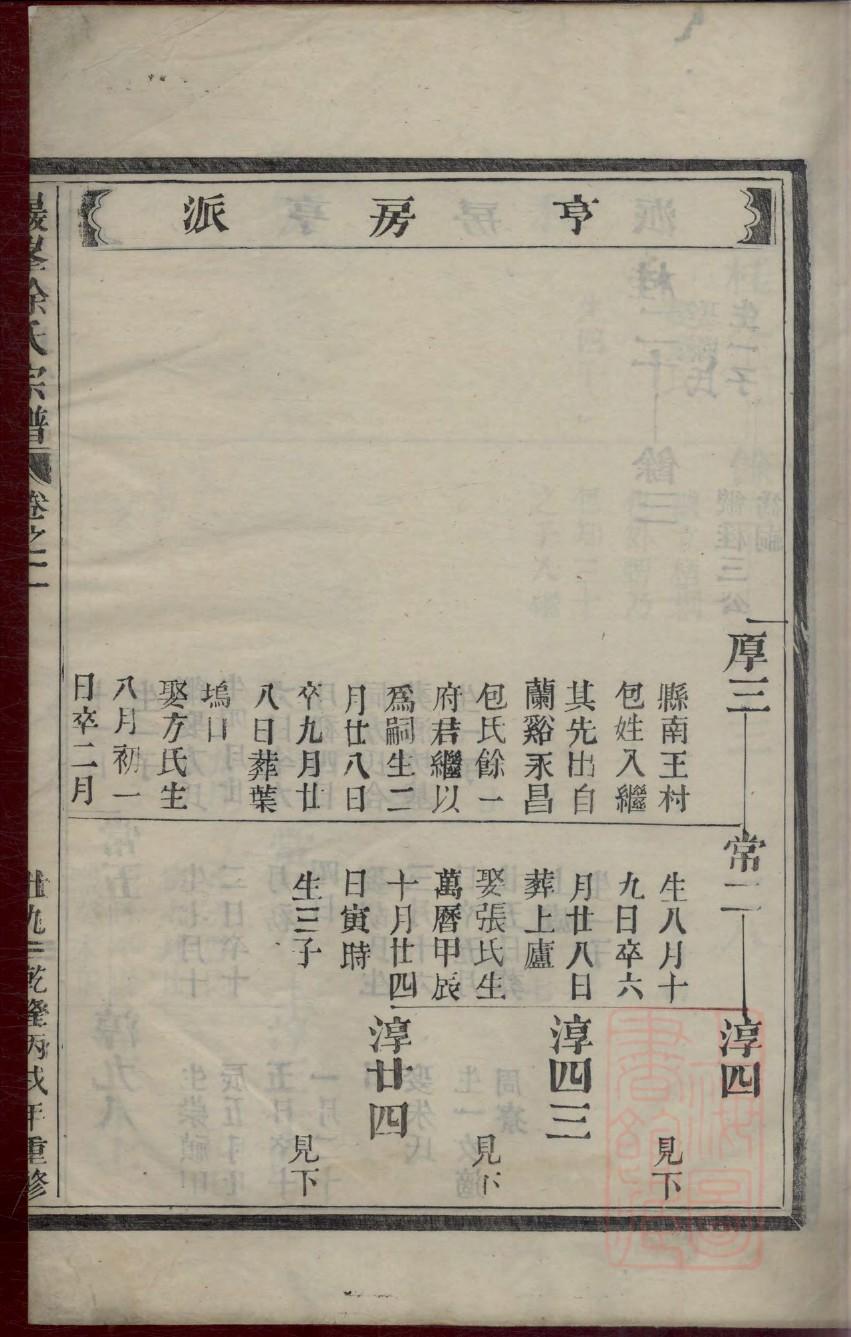 亨房派
厚三
縣南王村
包姓入繼
其先出自
蘭谿永昌
包氏餘一
府君繼以
爲嗣生二
月廿八日
卒九月廿
八日葬葉
塢口
娶方氏生
八月初一
日卒二月
常二
生八月十
九日卒六
月廿八日
葬上廬
娶張氏生
萬曆甲辰
十月廿四
日寅時
生三子
淳四
見下
淳四三
見下
淳廿四
見下
徐氏宗譜
卷之二
廿九
乾隆丙戌年重修